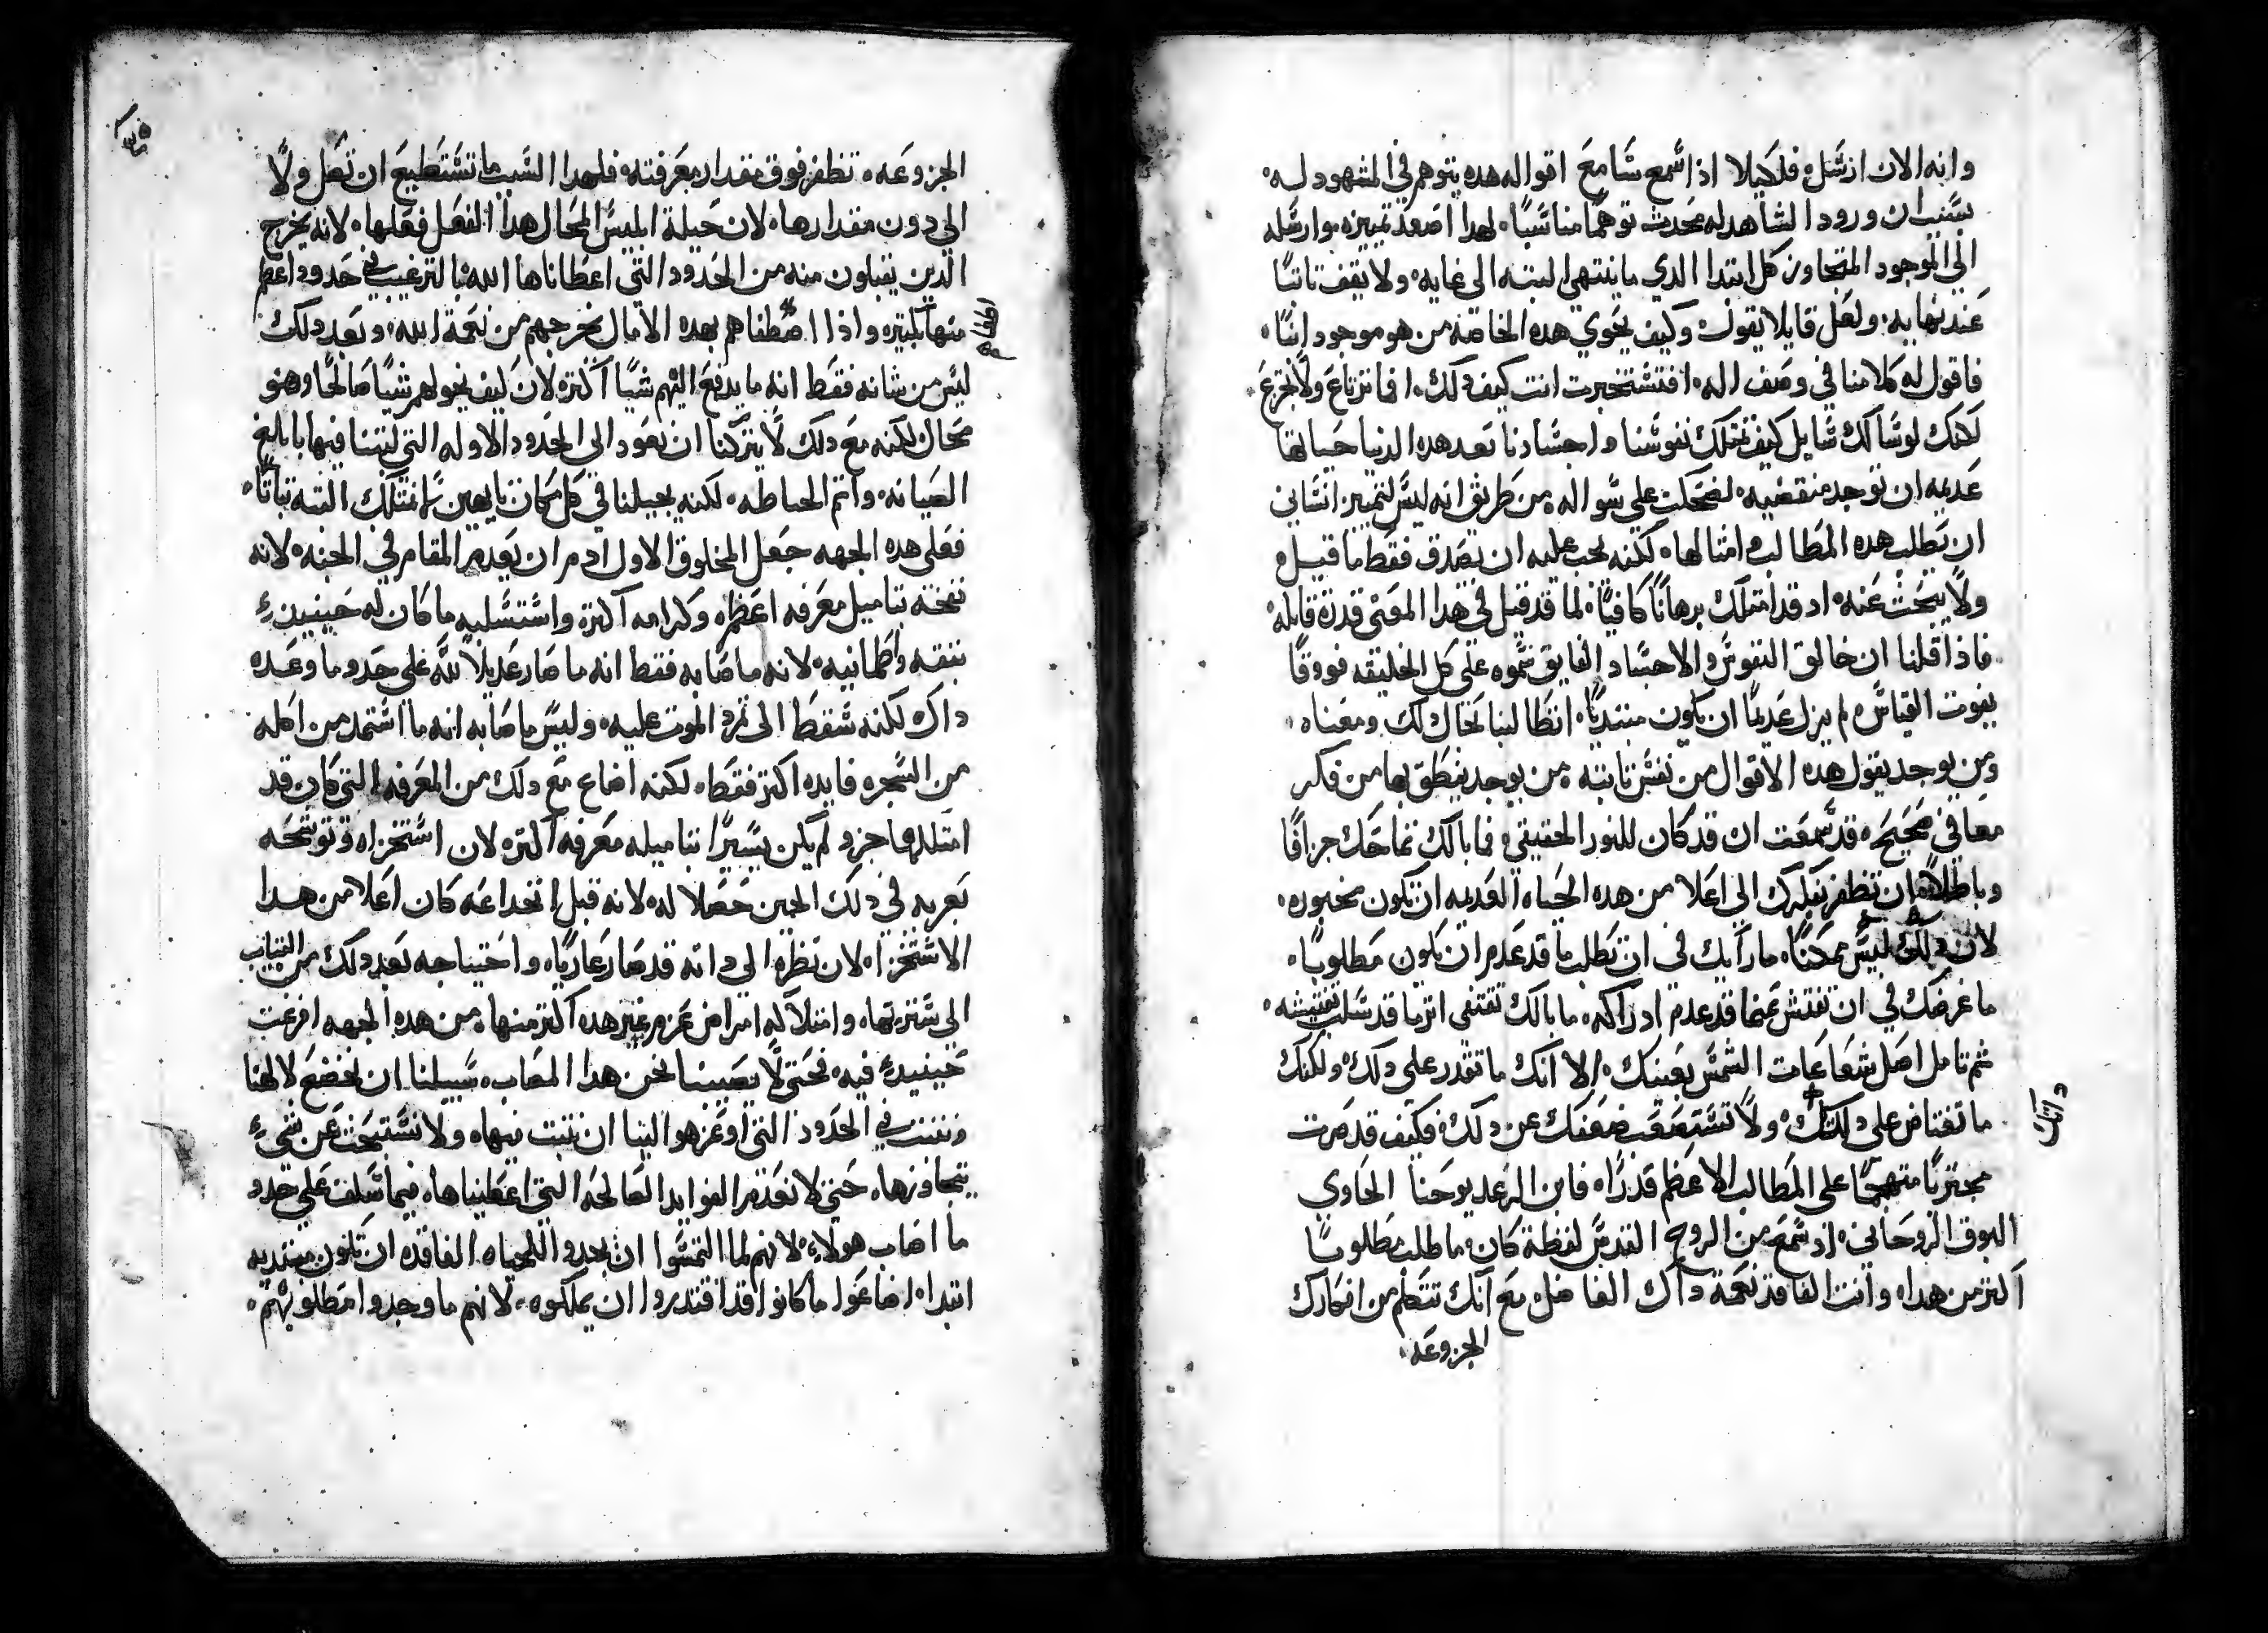 وانه الان ارسل فلكيلا اذا سمع سامع اقواله هده يتوهم في المشهود له
بسبب ان ورود الشاهد له محدث توهما مناسبا لهدا اصعد تميزه وارسله
الي الموجود المتجاوز كل ابتدا الدي ما ينتهي البته الى غايه ولا يقف تابتا
عند نهايه ولعل قايلا يقول وكيف يحوي هده الخاصه من هو موجود ابنا
فاقول له كلامنا في وصف اله افتستخبرت انت كيف دلك افما ترتاع ولا تجزع
لكنك لو سالك سايل كيف تمتلك نفوسنا واجسادنا بعد هده الدنيا حياتا
عديمه ان توجد منقضيه لضحكت علي سواله من طريق انه ليس لتميز انساني
ان يطلب هده المطالب وامثالها لكنه يجب عليه ان يصدق فقط ما قيل
ولا يبحث عنه اد قد امتلك برهانا كافيا لما قد قيل في هدا المعنى قدرة قايله
فاذا قلنا ان خالق النفوس والاجساد الفايق سموه على كل الخليقه فووقا
يفوت القياس لم يزل عديما ان يكون مبتديا اتطالبنا بحال دلك ومعناه
ومن يوجد يقول هده الاقوال من نفس تابته من يوجد ينطق بها من فكر
معافي صحيح قد سمعت ان قد كان للنور الحقيقي فما بالك تماحك جزافا
وباطلا ان تظفر بفكرك الى اعلا من هده الحياه العديمه ان تكون مخبوره
لان دلك ليس ممكنا ما رايك في ان تطلب ما قد عدم ان يكون مطلوبا
ما غرضك في ان تفتش عنما قد عدم ادراكه ما بالك تقتفي اثر ما قد سلب تفتيشه
ثم تامل اصل شعاعات الشمس بعينك الا انك ما تقدر علي دلك ولكنك
ما تغتاض على دلك ولا تستصعب ضعفك عن دلك فكيف قد صرت
مجتريا متهجما على المطالب الاعظم قدرا فابن الرعد يوحنا الحاوي
البوق الروحاني اد سمع من الروح القدس لفظة كان ما طلب مطلوبا
اكتر من هدا وانت الفاقد نعمة داك الفاضل مع انك تتكلم من افكارك
الجزوعه
الجزوعه تظفر فوق مقدار معرفته فلهدا السبب ما تستطيع ان تصل ولا
الي دون مقدارها لان حيلة ابليس المحال هدا الفعل فعلها لانه يخرج
الدين يقبلون منه من الحدود التي اعطاناها الله بالترغيب في حدود اعظم
منها بكتيره واذا اصطناهم بهده الامال يخرجهم من نعمة الله وبعد دلك
ليس من شانه فقط انه ما يدفع اليهم شيا اكتر لان كيف يخولهم شيا صالحا وهو
محال لكنه مع دلك لا يتركنا ان نعود الى الحدود الاوله التي لبتنا فيها بابلغ
الصيانه واتم الحياطه لكنه يجعلنا في كل مكان تايهين لا نمتلك البته تباتا
فعلى هده الجهه جعل المخلوق الاول ادم ان يعدم المقام في الجنه لانه
نفخه بتاميل معرفه اعظم وكرامه اكتر واستسلبه ما كان له حينيدء
بثقه وطمانيه لانه ما صابه فقط انه ما صار عديلا لله على حدوما وعده
داك لكنه سقط الى تمرد الموت عليه وليس ما صابه انه ما استمد من اكله
من الشجره فايده اكتر فقط لكنه اضاع مع دلك من المعرفه التي كان قد
امتلكها جزو لم يكن يسيرا بتاميله معرفه اكتر لان استخزاه وتوشحه
بعريه في دلك الحين حصلا له لانه قبل انخداعه كان اعلا من هدا
الاستخزا لان نظره الي داته قد صار عاريا واحتياجه بعد دلك من التياب
الي سترتها وامتلا له امراض عزم غير هده اكتر منها من هده الجهه افرغت
حينيدء فيه فحتى لا يصيبنا نحن هدا المصاب سبيلنا ان نخضع لالهنا
ونتبت في الحدود التي اوعز هو الينا ان نتبت فيها ولا نستبحث عن شيء
يتجاوزها حتى لا نعدم الفوايد الصالحه التي اعطيناها فيما سلف على حدو
ما اصاب هولاء لانهم لما التمسوا ان يجدوا للحياه الفاقده ان تكون مبتديه
ابتدا اضاعوا ما كانوا قد اقتدروا ان يملكوه لانهم ما وجدوا مطلوبهم